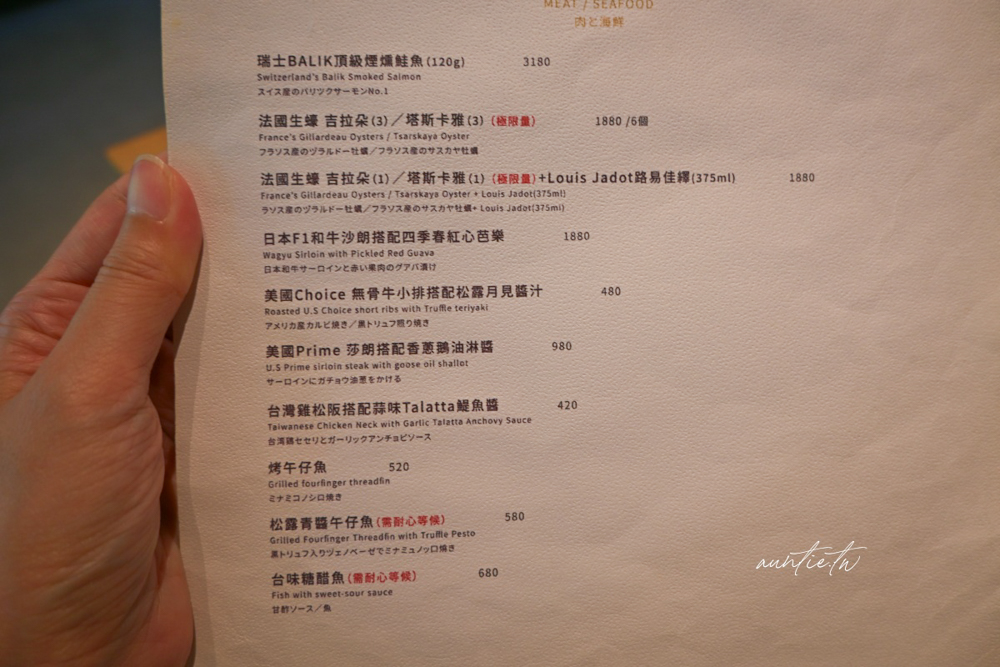 MEAT / SEAFOOD
肉と海鮮
瑞士BALIK頂級煙燻鮭魚(120g) 3180
Switzerland's Balik Smoked Salmon
スイス産のバリツクサーモンNo.1
法國生蠔 吉拉朵(3)／塔斯卡雅(3)(極限量) 1880 /6個
France's Gillardeau Oysters / Tsarskaya Oyster
フラソス産のヅラルドー牡蠣／フラソス産のサスカヤ牡蠣
法國生蠔 吉拉朵(1)／塔斯卡雅(1)(極限量)+Louis Jadot路易佳鐸(375ml) 1880
France's Gillardeau Oysters / Tsarskaya Oyster + Louis Jadot(375ml)
ラソス産のヅラルドー牡蠣／フラソス産のサスカヤ牡蠣+ Louis Jadot(375ml)
日本F1和牛沙朗搭配四季春紅心芭樂 1880
Wagyu Sirloin with Pickled Red Guava
日本和牛サーロインと赤い果肉のグアバ漬け
美國Choice 無骨牛小排搭配松露月見醬汁 480
Roasted U.S Choice short ribs with Truffle teriyaki
アメリカ産カルビ焼き／黒トリュフ照り焼き
美國Prime 莎朗搭配香蔥鵝油淋醬 980
U.S Prime sirloin steak with goose oil shallot
サーロインにガチョウ油葱をかける
台灣雞松阪搭配蒜味Talatta鯷魚醬 420
Taiwanese Chicken Neck with Garlic Talatta Anchovy Sauce
台湾鶏セセリとガーリックアンチョビソース
烤午仔魚 520
Grilled fourfinger threadfin
ミナミコノシロ焼き
松露青醬午仔魚(需耐心等候) 580
Grilled Fourfinger Threadfin with Truffle Pesto
黒トリュフ入りヅェノベーゼでミナミュノッロ焼き
台味糖醋魚(需耐心等候) 680
Fish with sweet-sour sauce
甘酢ソース／魚
auntie.tw